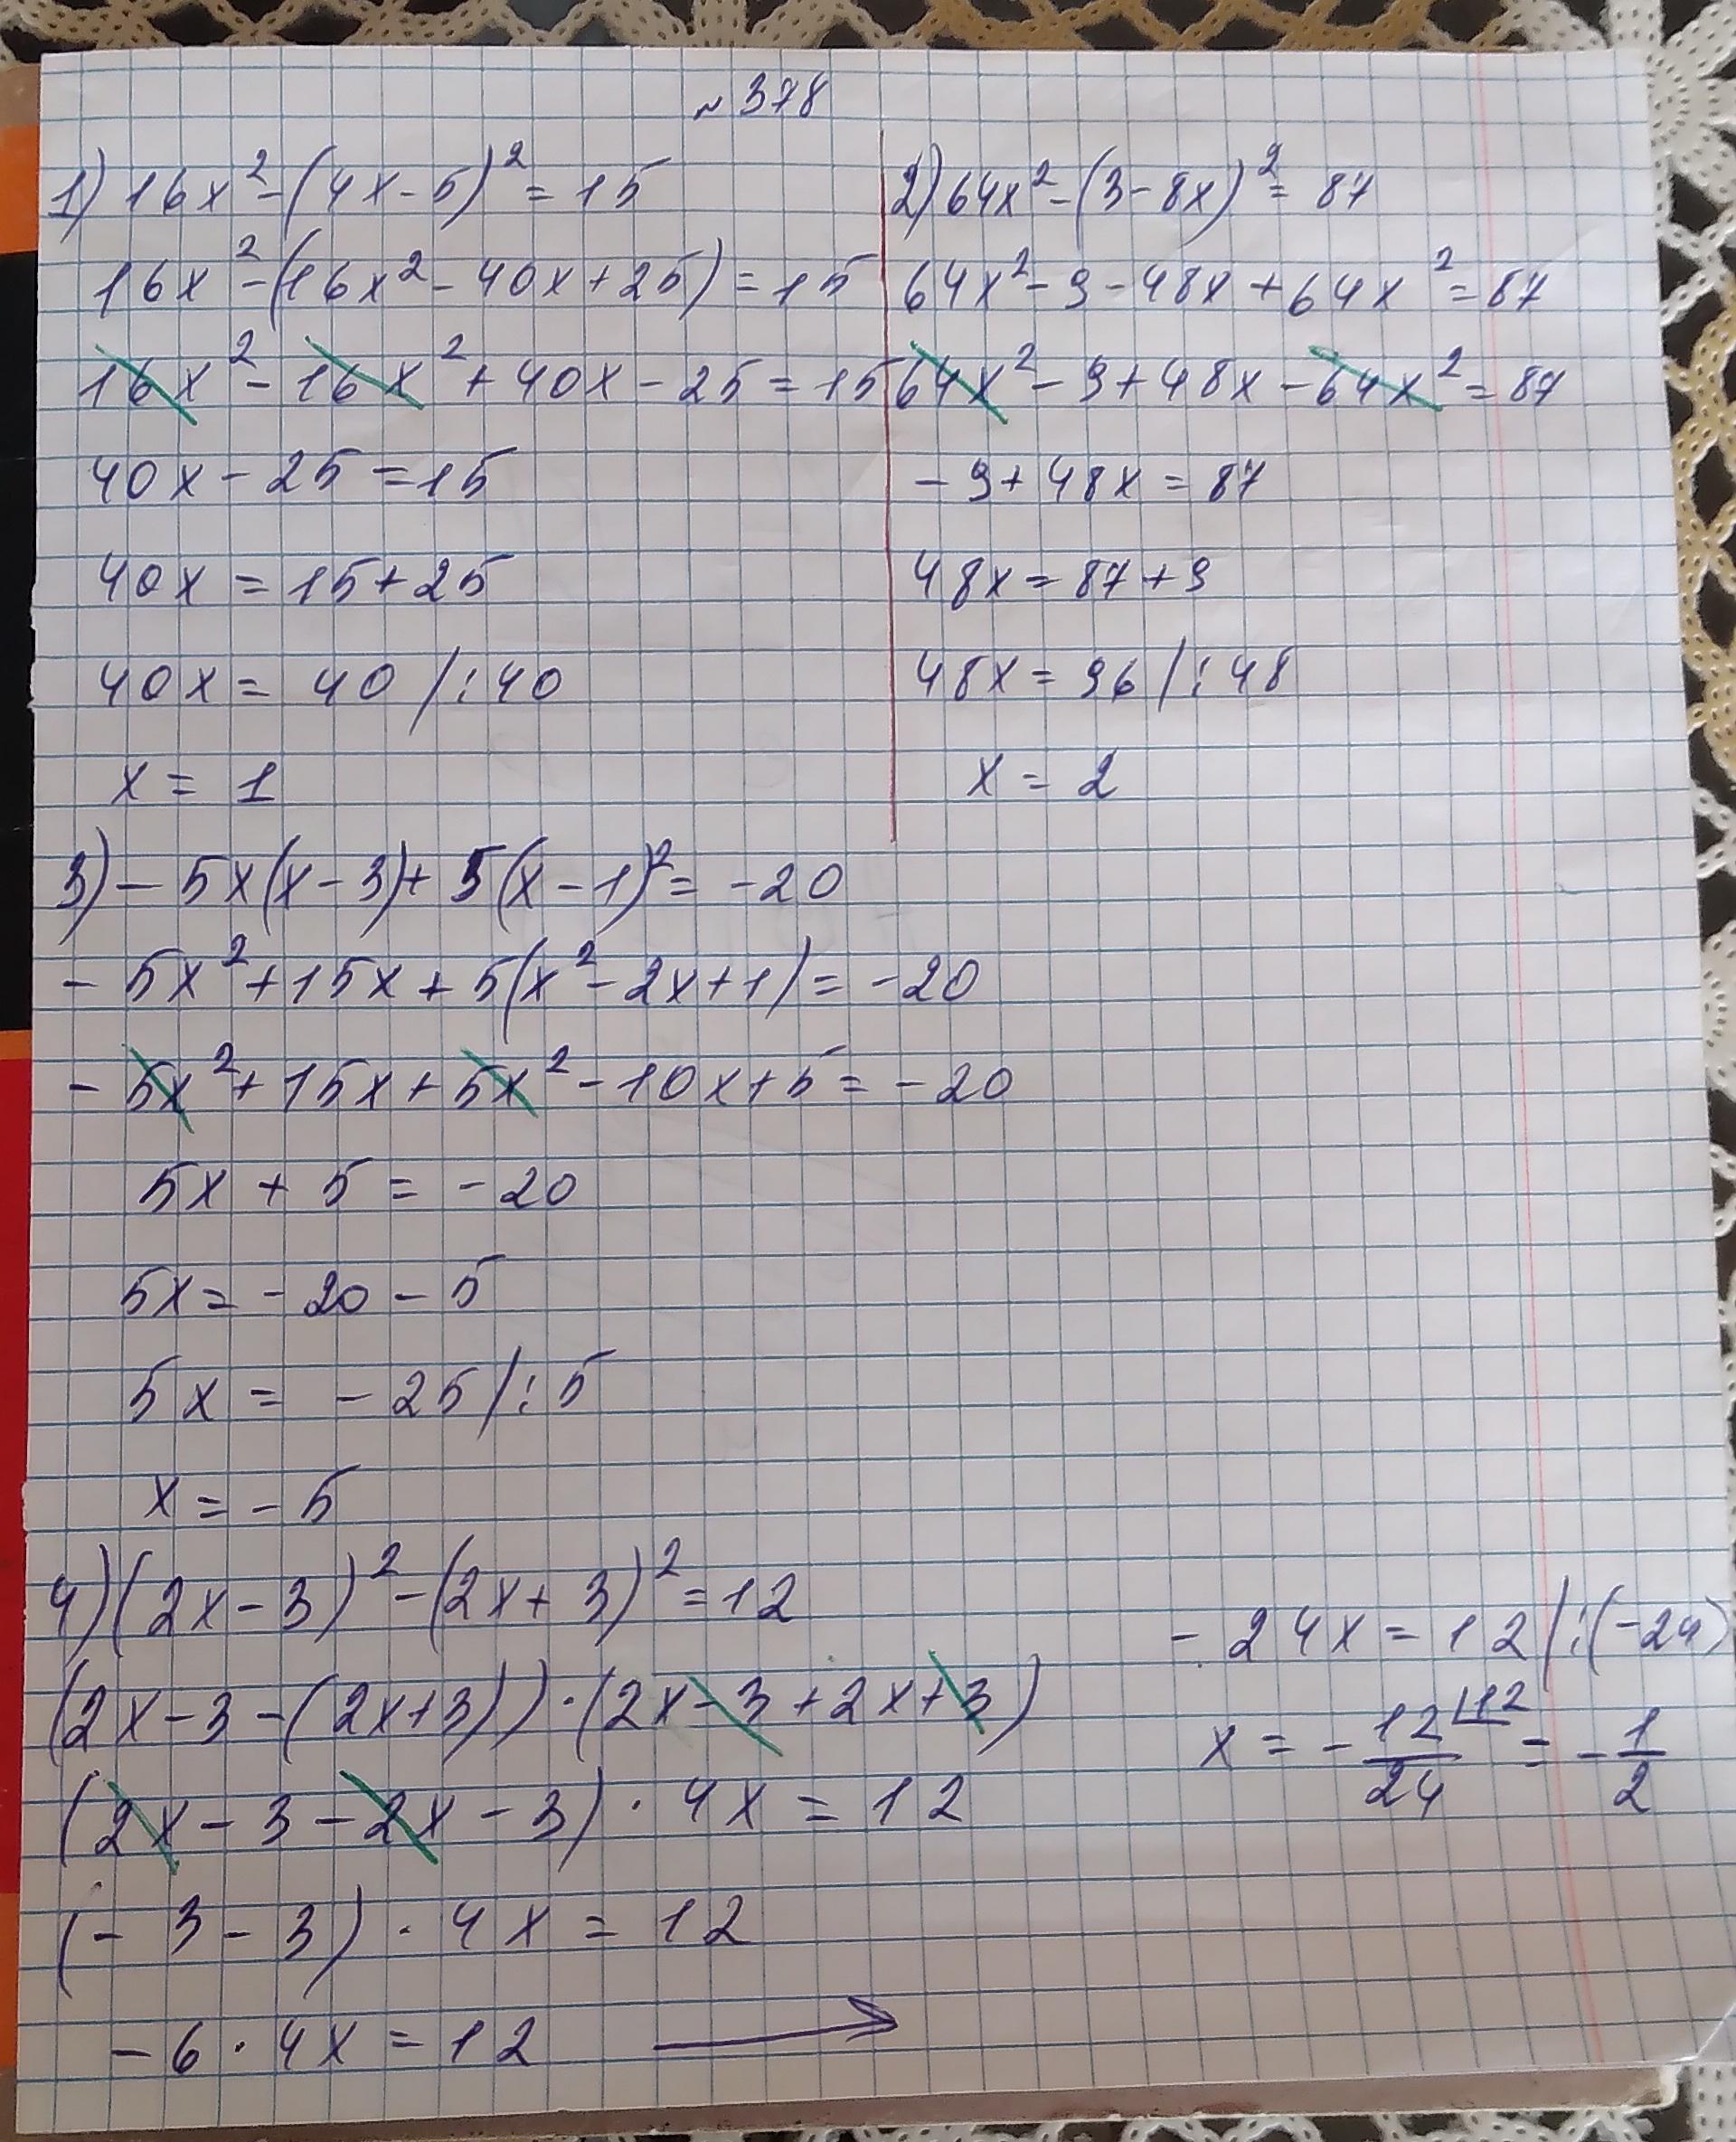 №378
1) 16x² - (4x - 5)² = 15
16x² - (16x² - 40x + 25) = 15
16x² - 16x² + 40x - 25 = 15
40x - 25 = 15
40x = 15 + 25
40x = 40 /:40
x = 1
2) 64x² - (3 - 8x)² = 87
64x² - 9 - 48x + 64x² = 87
64x² - 9 + 48x - 64x² = 87
- 9 + 48x = 87
48x = 87 + 9
48x = 96 /:48
x = 2
3) - 5x(x - 3) + 5(x - 1)² = -20
- 5x² + 15x + 5(x² - 2x + 1) = -20
- 5x² + 15x + 5x² - 10x + 5 = -20
5x + 5 = -20
5x = -20 - 5
5x = -25 /:5
x = -5
4) (2x - 3)² - (2x + 3)² = 12
(2x - 3 - (2x + 3)) · (2x - 3 + 2x + 3)
(2x - 3 - 2x - 3) · 4x = 12
(- 3 - 3) · 4x = 12
- 6 · 4x = 12 →
- 24x = 12 /:(-24)
x = - 12/24 |12 = - 1/2